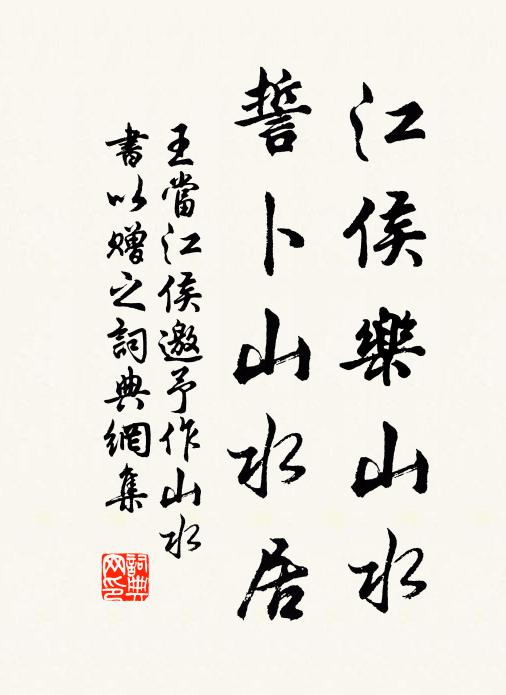 江侯樂山水
誓卜山水居
王當江侯邀予作山水
書以贈之詞典網集
詞典
网印